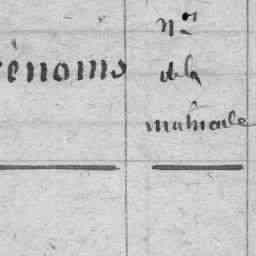 rénoms
Nos
de la
matricule